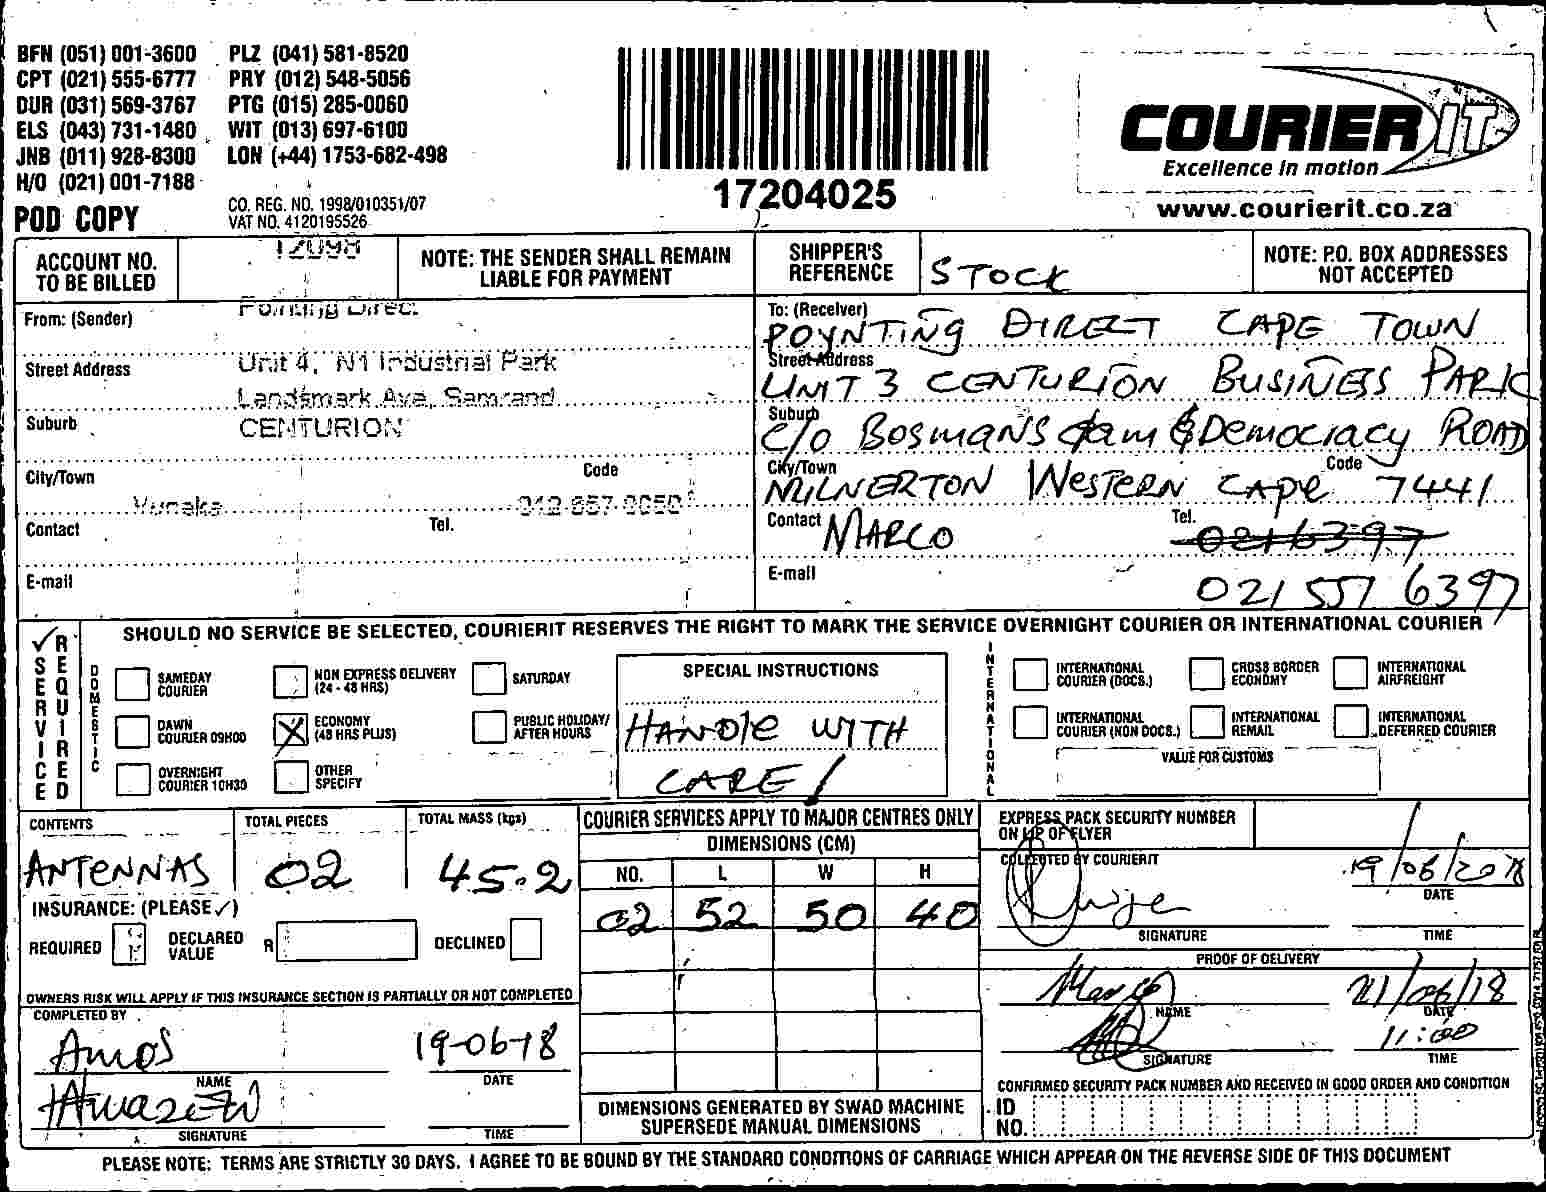 BFN (051) 001-3600 PLZ (041) 581-8520
CPT (021) 555-6777 PRY (012) 548-5056
DUR (031) 569-3767 PTG (015) 285-0060
ELS (043) 731-1480 WIT (013) 697-6100
JNB (011) 928-8300 LON (+44) 1753-682-498
H/O (021) 001-7188
CO. REG. NO. 1998/010351/07
POD COPY VAT NO. 4120195526
17204025
COURIER IT
Excellence in motion
www.courierit.co.za
ACCOUNT NO. TO BE BILLED
12098
NOTE: THE SENDER SHALL REMAIN LIABLE FOR PAYMENT
SHIPPER'S REFERENCE
STOCK
NOTE: P.O. BOX ADDRESSES NOT ACCEPTED
From: (Sender)
Direct
Street Address
Unit 4, N1 Industrial Park
Landsmark Ave, Samrand
Suburb
CENTURION
City/Town
Code
Contact
Tel.
012-657-0050
E-mail
To: (Receiver)
POYNTING DIRECT CAPE TOWN
Street Address
UNIT 3 CENTURION BUSINESS PARK
Suburb
C/O BOSMANS dam & DEMOCRACY ROAD
City/Town
Code
MILNERTON WESTERN CAPE 7441
Contact
MARCO
Tel.
0216397
E-mail
021 557 6397
SHOULD NO SERVICE BE SELECTED, COURIERIT RESERVES THE RIGHT TO MARK THE SERVICE OVERNIGHT COURIER OR INTERNATIONAL COURIER
✓ SERVICE REQUIRED
DOMESTIC
SAMEDAY COURIER
NON EXPRESS DELIVERY (24 - 48 HRS)
SATURDAY
DAWN COURIER 09H00
X ECONOMY (48 HRS PLUS)
PUBLIC HOLIDAY/ AFTER HOURS
OVERNIGHT COURIER 10H30
OTHER SPECIFY
SPECIAL INSTRUCTIONS
HANDLE WITH
CARE!
INTERNATIONAL
INTERNATIONAL COURIER (DOCS.)
CROSS BORDER ECONOMY
INTERNATIONAL AIRFREIGHT
INTERNATIONAL COURIER (NON DOCS.)
INTERNATIONAL REMAIL
INTERNATIONAL DEFERRED COURIER
VALUE FOR CUSTOMS
CONTENTS
ANTENNAS
TOTAL PIECES
02
TOTAL MASS (kgs)
45.2
INSURANCE: (PLEASE ✓)
REQUIRED
DECLARED VALUE
R
DECLINED
OWNERS RISK WILL APPLY IF THIS INSURANCE SECTION IS PARTIALLY OR NOT COMPLETED
COMPLETED BY
Amos
19-06-18
NAME
DATE
SIGNATURE
TIME
COURIER SERVICES APPLY TO MAJOR CENTRES ONLY
DIMENSIONS (CM)
NO. L W H
02 52 50 40
DIMENSIONS GENERATED BY SWAD MACHINE
SUPERSEDE MANUAL DIMENSIONS
EXPRESS PACK SECURITY NUMBER
ON LIP OF FLYER
COLLECTED BY COURIERIT
19/06/2018
DATE
SIGNATURE
TIME
PROOF OF DELIVERY
Marco
21/06/18
NAME
DATE
11:00
SIGNATURE
TIME
CONFIRMED SECURITY PACK NUMBER AND RECEIVED IN GOOD ORDER AND CONDITION
ID NO.
PLEASE NOTE: TERMS ARE STRICTLY 30 DAYS. I AGREE TO BE BOUND BY THE STANDARD CONDITIONS OF CARRIAGE WHICH APPEAR ON THE REVERSE SIDE OF THIS DOCUMENT